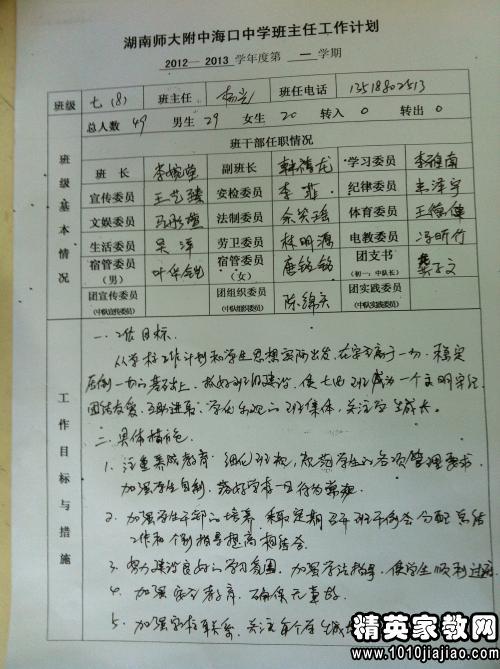 湖南师大附中海口中学班主任工作计划
2012—2013 学年度第 一 学期
班级 七(8) 班主任 杨光 班任电话 13518802513
总人数 49 男生 29 女生 20 转入 0 转出 0
班级基本情况
班干部任职情况
班长 李婉莹 副班长 韩清龙 学习委员 李雅南
宣传委员 王艺臻 安检委员 李菲 纪律委员 王泽宇
文娱委员 法制委员 余奕瑶 体育委员 王德伟
生活委员 吴泽 劳卫委员 林明源 电教委员 冯昕竹
宿管委员 叶华锐 宿管委员 唐铭铭 团支书 龚子文
(男) (女) (初一:中队长)
团宣传委员 团组织委员 陈锦天 团实践委员
(中队宣传委员) (中队组织委员) (中队实践委员)
工作目标与措施
一. 工作目标.
从学校工作计划和学生思想实际出发,在安全高于一切、稳定
压倒一切的基础上,抓好班级建设,使七(8)班成为一个文明守纪、
团结友爱、互助进取、学化乐观的班集体,关注学生成长。
二. 具体措施
1. 注重养成教育,细化班规,规范学生的各项管理要求,
加强学生自制,落好学校一日行为常规
2. 加强学生干部的培养,采取定期召开班干例会,分配总结
工作和个别指导提高相结合.
3. 努力建设良好的学习氛围,加强学法指导,使学生顺利过
4. 加强安全教育,确保无事故
5. 加强家校联系,关注每个学生成
精英家教网
www.1010jiajiao.com